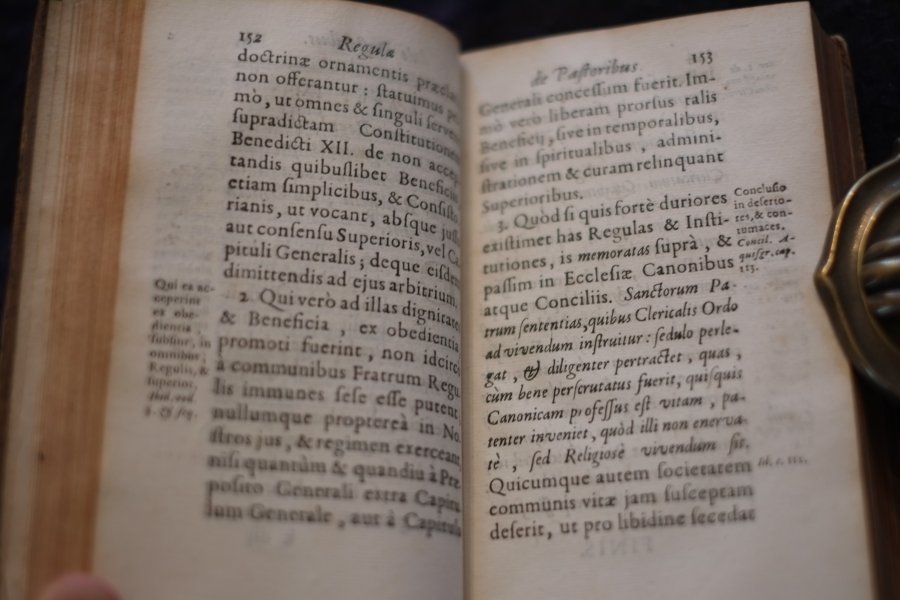 152 Regulæ
doctrinæ ornamentis
non offerantur : statuimus
mò, ut omnes & singuli
supradictam Constitutione
Benedicti XII. de non
tandis quibuslibet Benefici
etiam simplicibus, & Consisto
rianis, ut vocant, absque
aut consensu Superioris, vel
pituli Generalis ; deque
dimittendis ad ejus arbitrium.
2. Qui verò ad illas dignitate
& Beneficia , ex obedientia
promoti fuerint , non idcirco
à communibus Fratrum Regu
lis immunes sese esse putent
nullumque propterea in No
stros jus , & regimen exerceant
nisi quantùm & quandiu à Præ
posito Generali extra Capitu
lum Generale , aut à Capitulo
Qui ex
ceperint
ex obe-
dientia
subsint, in
omnibus
Regulis, &
superior.
Ibid. eod.
de Pastoribus. 153
Generali concessum fuerit. Im-
mò verò liberam prorsus talis
Beneficij, sive in temporalibus,
sive in spiritualibus , admini-
strationem & curam relinquant
Superioribus.
3. Quòd si quis fortè duriores
existimet has Regulas & Insti-
tutiones, is memoratas suprà , &
passim in Ecclesiæ Canonibus
atque Conciliis. Sanctorum Pa-
trum sententias, quibus Clericalis Ordo
ad vivendum instruitur : sedulo perle-
gat , & diligenter pertractet , quas ,
cùm bene perscrutatus fuerit, quisquis
Canonicam professus est vitam , pa-
tenter inveniet , quòd illi non enerva-
tè , sed Religiosè vivendum sit.
Quicumque autem societatem
communis vitæ jam susceptam
deserit, ut pro libidine secedat
Conclusio
in deserto-
res, & con-
tumaces.
Concil. A-
quisgr. cap.
113.